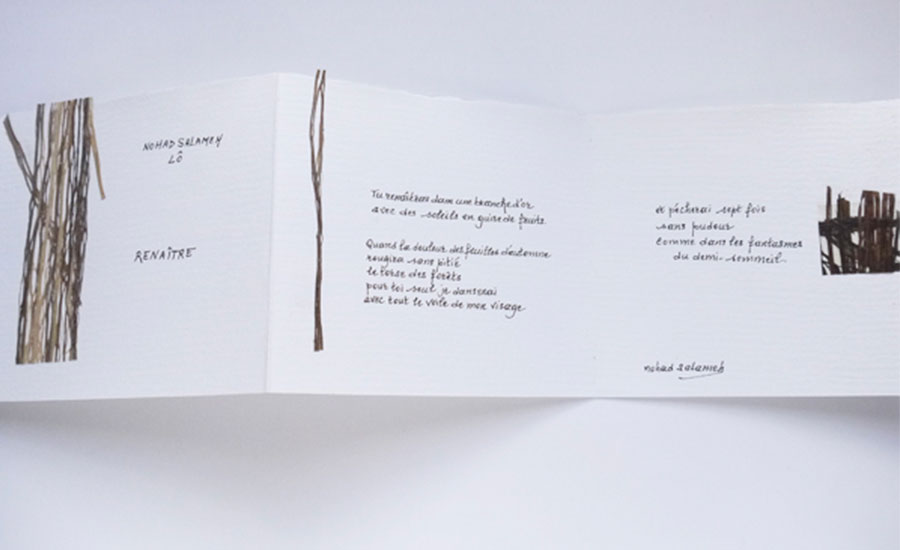 NOHAD SALAMEH
LÔ
RENAÎTRE
Tu renaîtras dans une branche d'or
avec des soleils en guise de fruits.
Quand la douleur des feuilles d'automne
rougira sans pitié
le torse des forêts
pour toi seul je danserai
avec tout le voile de mon visage
et pécherai sept fois
sans pudeur
comme dans les fantasmes
du demi-sommeil.
nohad salameh